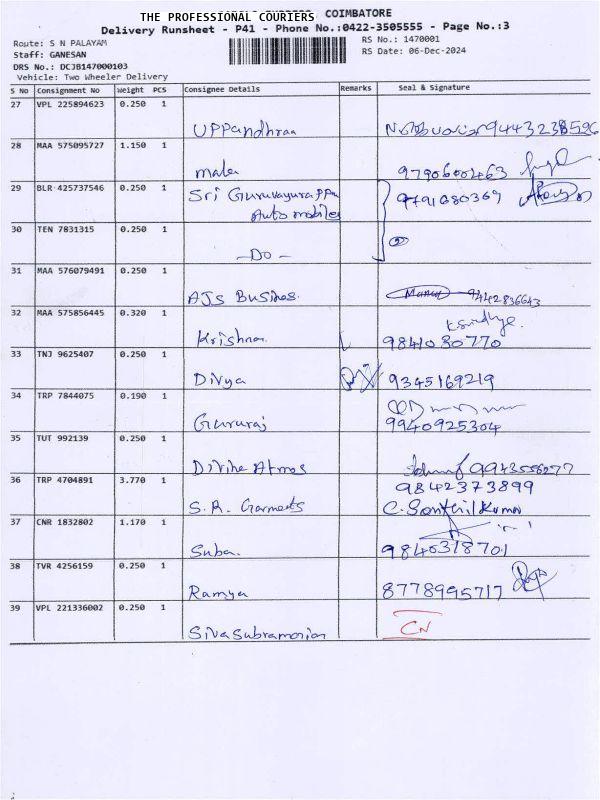 THE PROFESSIONAL COURIERS COIMBATORE
Delivery Runsheet - P41 - Phone No.:0422-3505555 - Page No.:3
Route: S N PALAYAM
RS No.: 1470001
Staff: GANESAN
RS Date: 06-Dec-2024
DRS No.: DCJB147000103
Vehicle: Two Wheeler Delivery
S No Consignment No Weight PCS Consignee Details Remarks Seal & Signature
27 VPL 225894623 0.250 1
UPPandhraa 9443238596
28 MAA 575095727 1.150 1
mala 9790600463
29 BLR 425737546 0.250 1 Sri Guruvayurappa 9791680369
Automobiles
30 TEN 7831315 0.250 1
2
-Do-
31 MAA 576079491 0.250 1
AJs Busines. 9442836643
32 MAA 575856445 0.320 1
Krishna 9841080770
33 TNJ 9625407 0.250 1
Divya 9345169219
34 TRP 7844075 0.190 1
Gururaj 9940925304
35 TUT 992139 0.250 1
Divine Atmos 9943556277
36 TRP 4704891 3.770 1 9842373899
S.R. Garments C. Senthil Kumar
37 CNR 1832802 1.170 1
Suba. 9840318701
38 TVR 4256159 0.250 1
Ramya 8778995717
39 VPL 221336002 0.250 1
Sivasubramanian CN